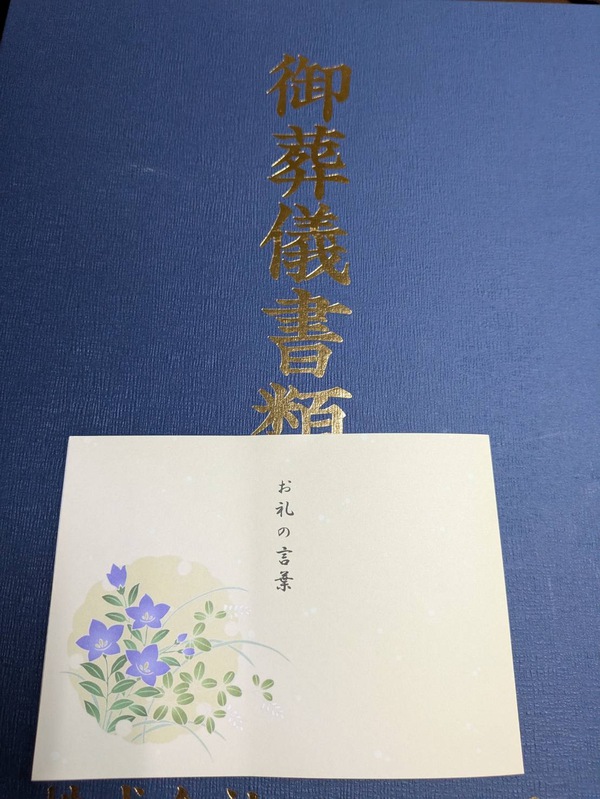 御葬儀書類
お礼の言葉